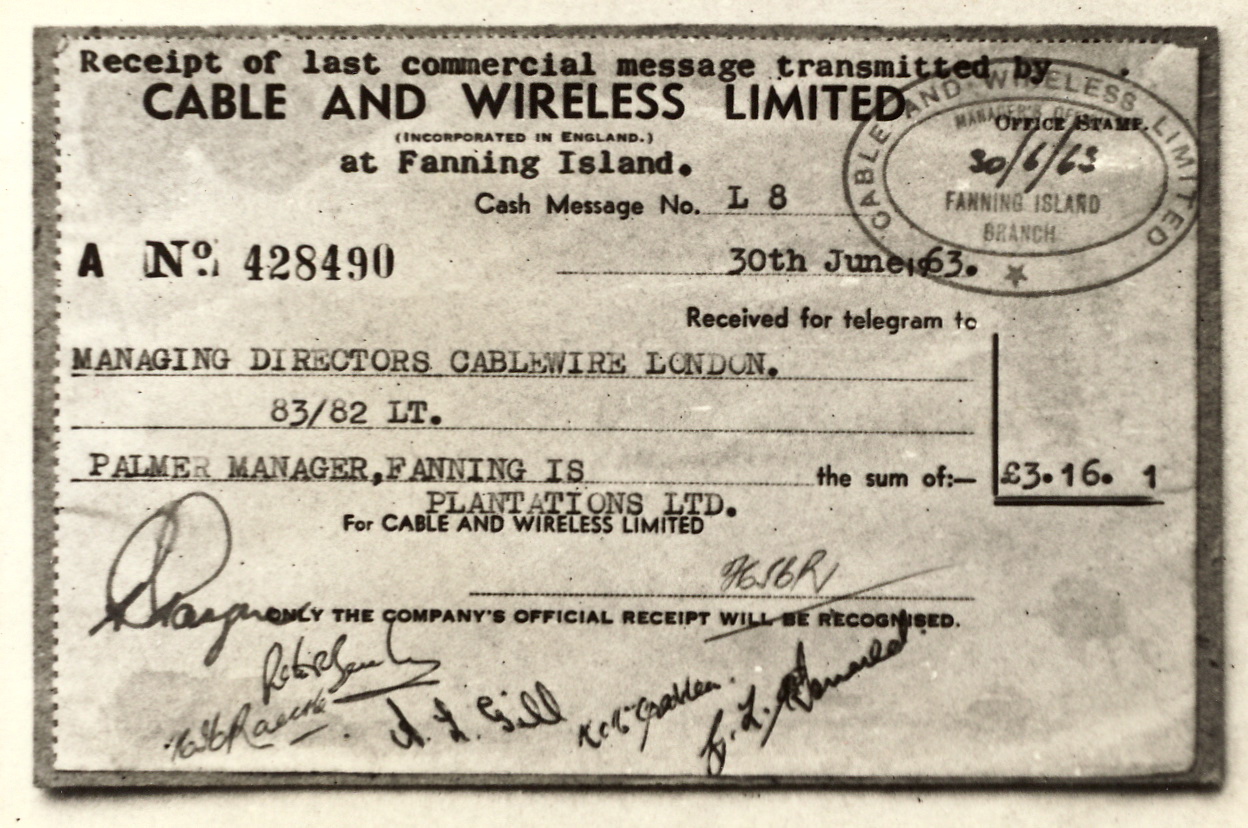 Receipt of last commercial message transmitted by
CABLE AND WIRELESS LIMITED
(INCORPORATED IN ENGLAND.)
at Fanning Island.
OFFICE STAMP.
CABLE AND WIRELESS LIMITED
MANAGER'S
30/6/63
FANNING ISLAND
BRANCH
Cash Message No. L 8
A No. 428490
30th June, 63.
Received for telegram to
MANAGING DIRECTORS CABLEWIRE LONDON.
83/82 LT.
PALMER MANAGER, FANNING IS the sum of:— £3.16. 1
PLANTATIONS LTD.
For CABLE AND WIRELESS LIMITED
ONLY THE COMPANY'S OFFICIAL RECEIPT WILL BE RECOGNISED.
L. Gill